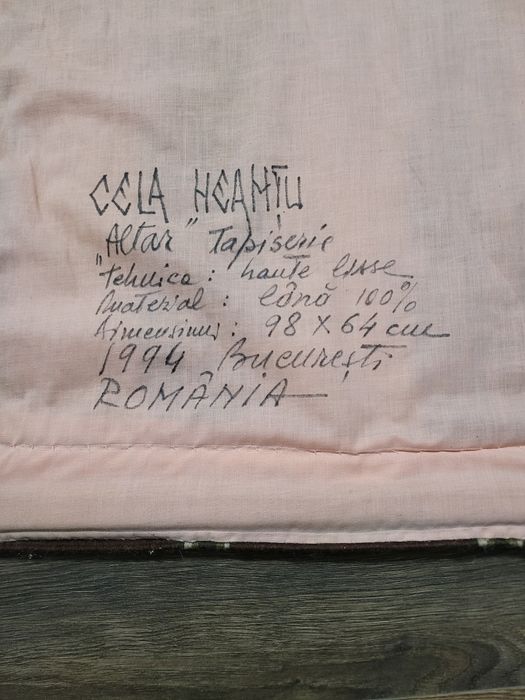 CELA NEAMȚU
"Altar" Tapiserie
Tehnica: haute lisse
Material: lână 100%
Dimensiuni: 98 X 64 cm
1994, București
ROMÂNIA